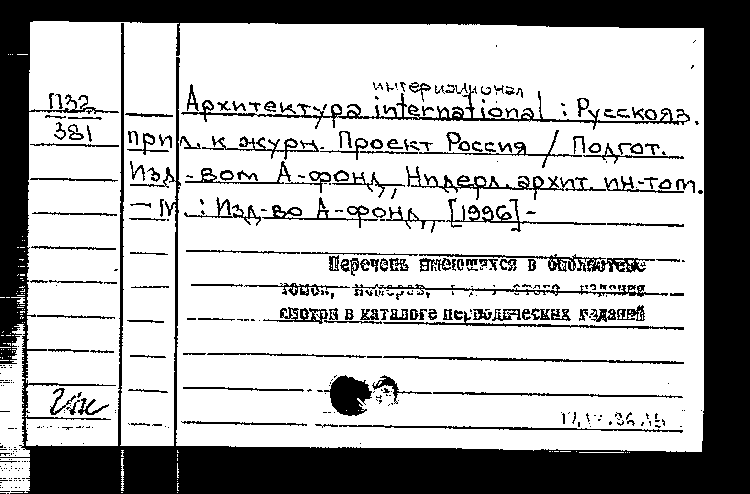 интернационал
П32 Архитектура international : Русскояз.
381 прил. к журн. Проект Россия / Подгот.
Изд-вом А-фонд, Нидерл. архит. ин-том.
– М. : Изд-во А-фонд, [1996] -
Перечень имеющихся в библиотеке
томов, номеров, этого издания
смотри в каталоге периодических изданий